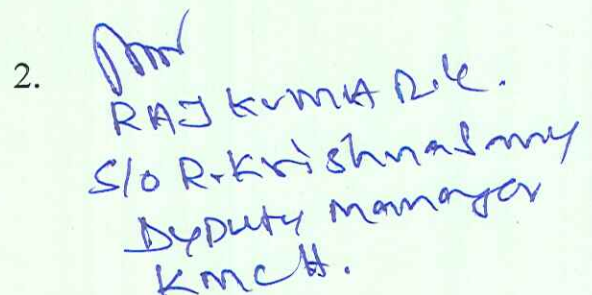 2.
RAJKUMAR.K.
S/O R.Krishnasamy
Dyputy Manager
KMCH.